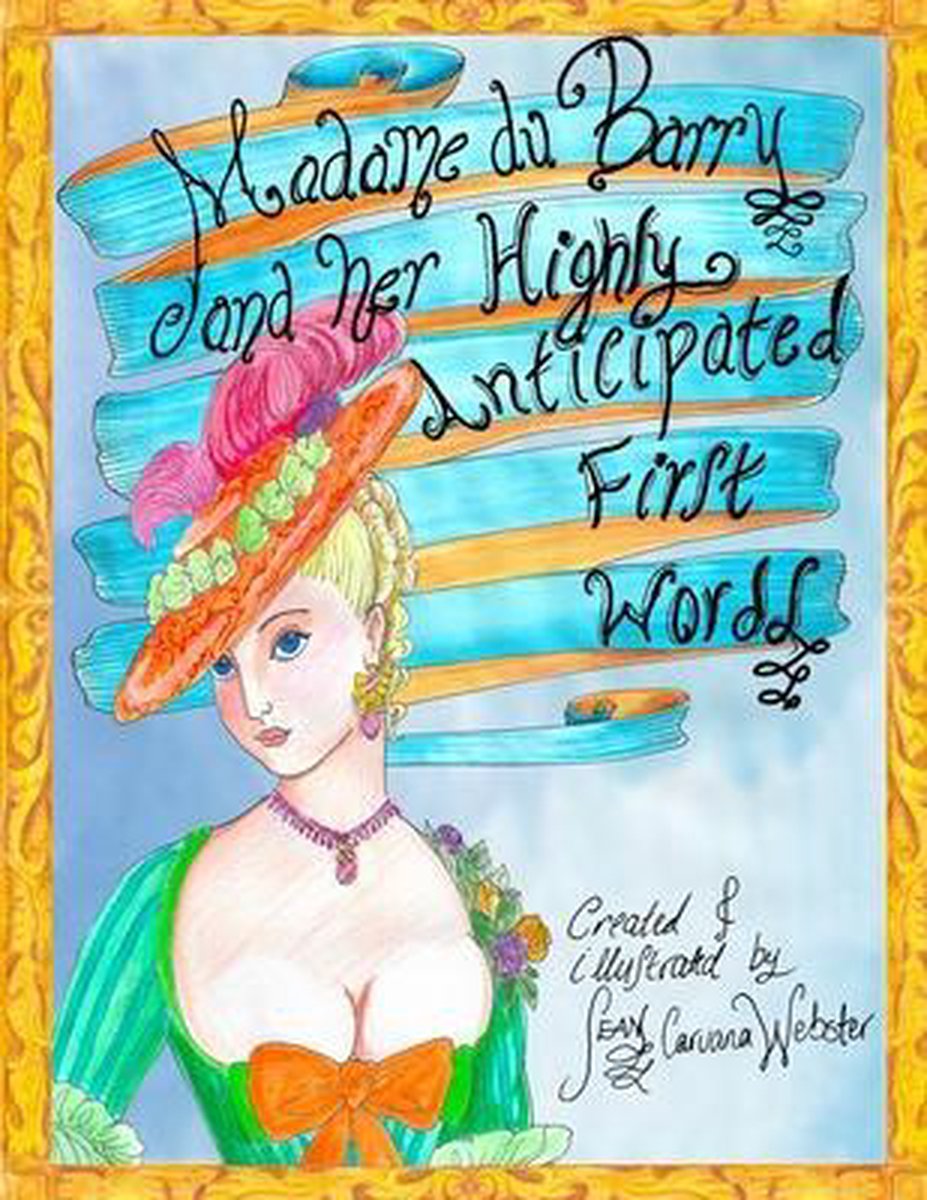 Madame du Barry
and her Highly
Anticipated
First
Words
Created &
illustrated by
SEAN Caruana Webster